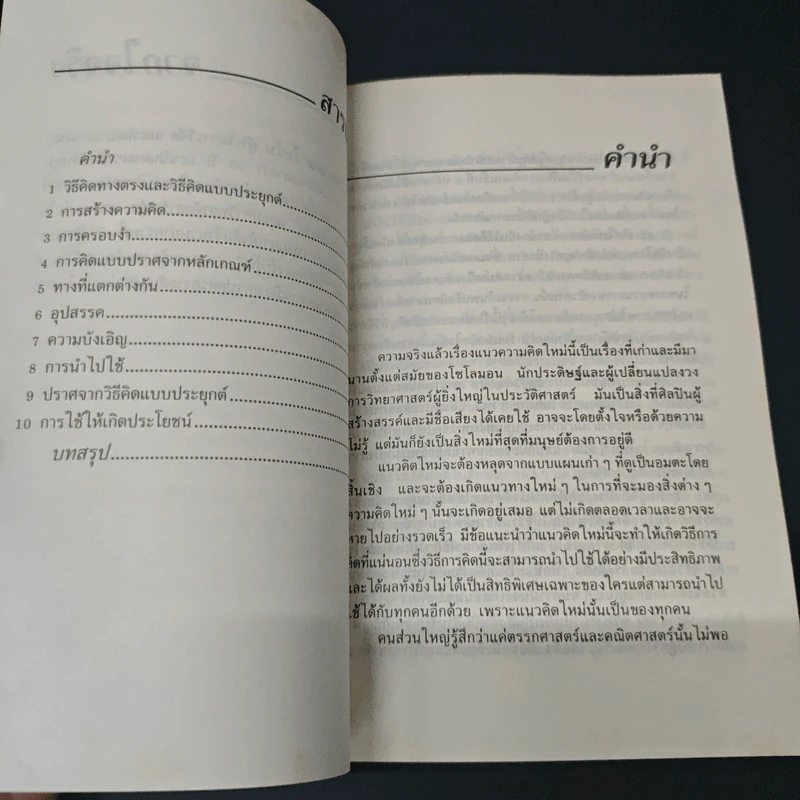 สาร
คำนำ
1 วิธีคิดทางตรงและวิธีคิดแบบประยุกต์
2 การสร้างความคิด
3 การครอบงำ
4 การคิดแบบปราศจากหลักเกณฑ์
5 ทางที่แตกต่างกัน
6 อุปสรรค
7 ความบังเอิญ
8 การนำไปใช้
9 ปราศจากวิธีคิดแบบประยุกต์
10 การใช้ให้เกิดประโยชน์
บทสรุป
คำนำ
ความจริงแล้วเรื่องแนวความคิดใหม่นี้เป็นเรื่องที่เก่าและมีมา
นานตั้งแต่สมัยของโซโลมอน นักประดิษฐ์และผู้เปลี่ยนแปลงวง
การวิทยาศาสตร์ผู้ยิ่งใหญ่ในประวัติศาสตร์ มันเป็นสิ่งที่ศิลปินผู้
สร้างสรรค์และมีชื่อเสียงได้เคยใช้ อาจจะโดยตั้งใจหรือด้วยความ
ไม่รู้ แต่มันก็ยังเป็นสิ่งใหม่ที่สุดที่มนุษย์ต้องการอยู่ดี
แนวคิดใหม่จะต้องหลุดจากแบบแผนเก่า ๆ ที่ดูเป็นอมตะโดย
สิ้นเชิง และจะต้องเกิดแนวทางใหม่ ๆ ในการที่จะมองสิ่งต่าง ๆ
ความคิดใหม่ ๆ นั้นจะเกิดอยู่เสมอ แต่ไม่เกิดตลอดเวลาและอาจจะ
หายไปอย่างรวดเร็ว มีข้อแนะนำว่าแนวคิดใหม่นี้จะทำให้เกิดวิธีการ
คิดที่แน่นอนซึ่งวิธีการคิดนี้จะสามารถนำไปใช้ได้อย่างมีประสิทธิภาพ
และได้ผลทั้งยังไม่ได้เป็นสิทธิพิเศษเฉพาะของใครแต่สามารถนำไป
ใช้ได้กับทุกคนอีกด้วย เพราะแนวคิดใหม่นั้นเป็นของทุกคน
คนส่วนใหญ่รู้สึกว่าแค่ตรรกศาสตร์และคณิตศาสตร์นั้นไม่พอ